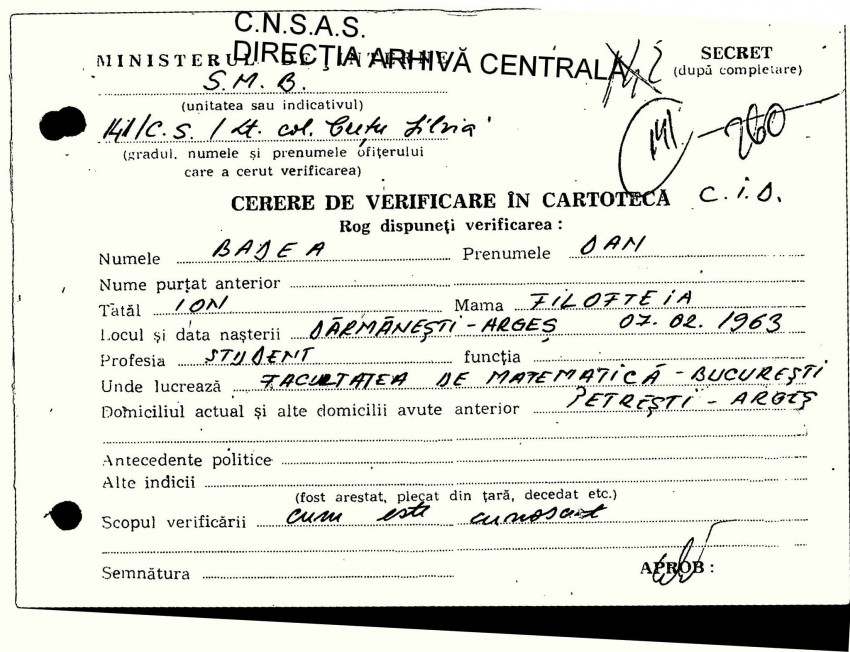 C.N.S.A.S.
DIRECȚIA ARHIVĂ CENTRALĂ
MINISTERUL DE INTERNE
SECRET
(după completare)
S.M.B.
(unitatea sau indicativul)
141/C.S. / Lt. col. Crețu Silvia
(gradul, numele și prenumele ofițerului
care a cerut verificarea)
141
260
CERERE DE VERIFICARE ÎN CARTOTECĂ C.I.D.
Rog dispuneți verificarea :
Numele BADEA Prenumele DAN
Nume purtat anterior
Tatăl ION Mama FILOFTEIA
Locul și data nașterii DĂRMĂNEȘTI - ARGEȘ 07.02.1963
Profesia STUDENT funcția
Unde lucrează FACULTATEA DE MATEMATICĂ - BUCUREȘTI
Domiciliul actual și alte domicilii avute anterior PETREȘTI - ARGEȘ
Antecedente politice
Alte indicii
(fost arestat, plecat din țară, decedat etc.)
Scopul verificării cum este cunoscut
Semnătura
APROB :